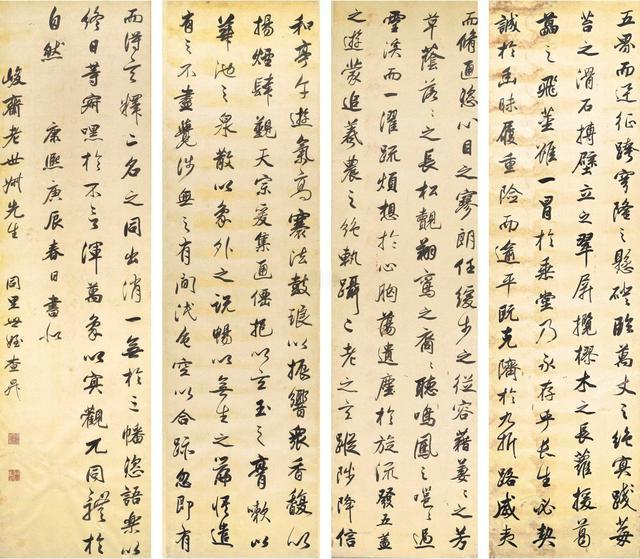 五界而迅征跨穹隆之懸磴臨萬丈之絕冥踐莓
苔之滑石搏壁立之翠屏攬樛木之長蘿援葛
藟之飛莖雖一冒於垂堂乃永存乎長生必契
誠於幽昧履重險而逾平既克隮於九折路威夷
而脩通恣心目之寥朗任緩步之從容藉萋〻之芳
草蔭落〻之長松覿翔鸞之裔〻聽鳴鳳之嗈〻過
靈溪而一濯疏煩想於心胸蕩遺塵於旋流發五蓋
之遊蒙追羲農之絕軌躡二老之玄蹤陟降信
和亭午遊氣高褰法鼓琅以振響眾香馥以
揚煙肆覲天宗爰集通僊挹以玄玉之膏嗽以
華池之泉散以象外之說暢以無生之篇悟遣
有之不盡覺涉無之有間泯色空以合跡忽即有
而得玄釋二名之同出消一無於三幡恣語樂以
終日等寂嘿於不言渾萬象以冥觀兀同體於
自然 康熙庚辰春日書似
峻齋老世叔先生 同里世姪查昇